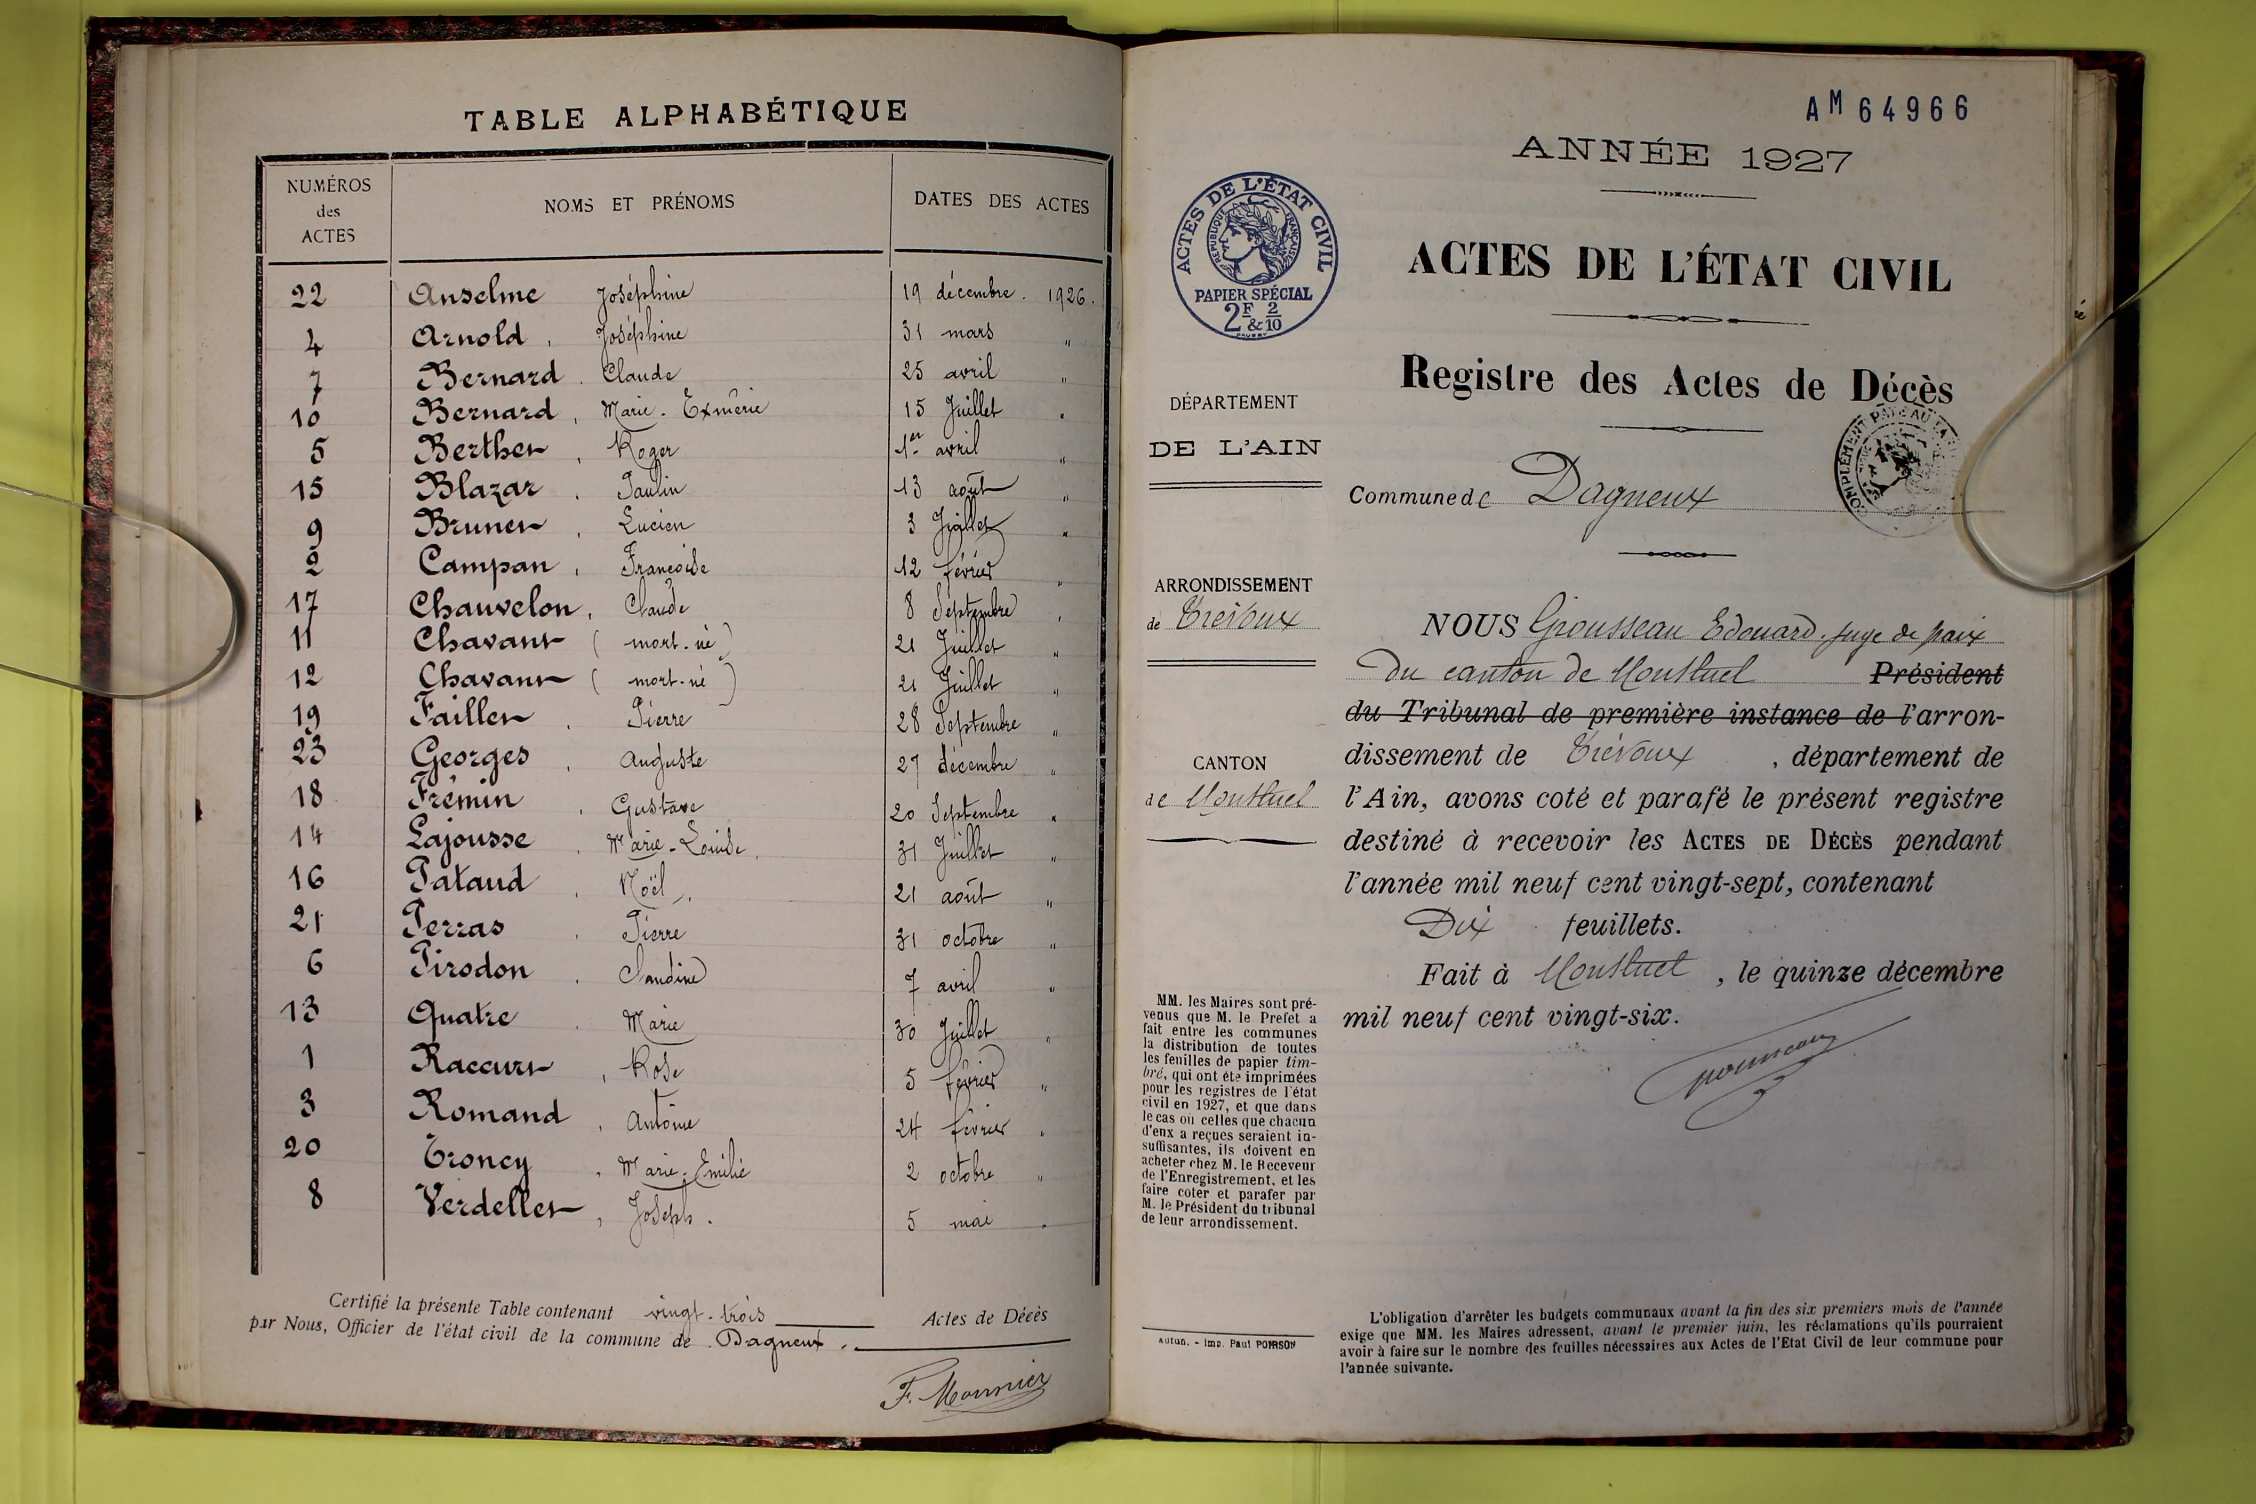 TABLE ALPHABÉTIQUE
NUMÉROS des ACTES NOMS ET PRÉNOMS DATES DES ACTES
22 Anselme Joséphine 19 décembre. 1926.
4 Arnold, Joséphine 31 mars "
7 Bernard. Claude 25 avril "
10 Bernard, Marie-Exmérie 15 Juillet "
5 Berthet, Roger 1er avril "
15 Blazar, Paulin 13 août "
9 Brunet, Lucien 3 Juillet "
2 Campan, Françoise 12 février "
17 Chauvelon, Claude 8 Septembre "
11 Chavant (mort-né) 21 Juillet "
12 Chavant (mort-né) 21 Juillet "
19 Faillet, Pierre 28 Septembre "
23 Georges, Auguste 27 décembre "
18 Frémin, Gustave 20 Septembre "
14 Lajousse, Marie-Louise. 31 Juillet "
16 Pataud, Noël. 21 août "
21 Perras, Pierre 31 octobre "
6 Pirodon, Claudine 7 avril "
13 Quatre, Marie 30 Juillet "
1 Raccurt, Rose 5 février "
3 Romand, Antoine 24 février "
20 Troncy, Marie-Emilie 2 octobre "
8 Verdellet, Joseph. 5 mai "
Certifié la présente Table contenant vingt-trois Actes de Décès
par Nous, Officier de l'état civil de la commune de Dagneux.
F. Monnier
AM 64966
ANNÉE 1927
ACTES DE L'ÉTAT CIVIL
RÉPUBLIQUE FRANÇAISE
PAPIER SPÉCIAL
2F & 2/10
ACTES DE L'ÉTAT CIVIL
Registre des Actes de Décès
DÉPARTEMENT
DE L'AIN
Commune de Dagneux
ARRONDISSEMENT
de Trévoux
CANTON
de Montluel
NOUS Grousseau Edouard. juge de paix
du canton de Montluel Président
du Tribunal de première instance de l'arron-
dissement de Trévoux, département de
l'Ain, avons coté et parafé le présent registre
destiné à recevoir les ACTES DE DÉCÈS pendant
l'année mil neuf cent vingt-sept, contenant
Dix feuillets.
Fait à Montluel, le quinze décembre
mil neuf cent vingt-six.
Grousseau
MM. les Maires sont pré-
venus que M. le Préfet a
fait entre les communes
la distribution de toutes
les feuilles de papier tim-
bré, qui ont été imprimées
pour les registres de l'état
civil en 1927, et que dans
le cas où celles que chacun
d'eux a reçues seraient in-
suffisantes, ils doivent en
acheter chez M. le Receveur
de l'Enregistrement, et les
faire coter et parafer par
M. le Président du tribunal
de leur arrondissement.
Autun. - Imp. Paul POIRSON
L'obligation d'arrêter les budgets communaux avant la fin des six premiers mois de l'année
exige que MM. les Maires adressent, avant le premier juin, les réclamations qu'ils pourraient
avoir à faire sur le nombre des feuilles nécessaires aux Actes de l'Etat Civil de leur commune pour
l'année suivante.